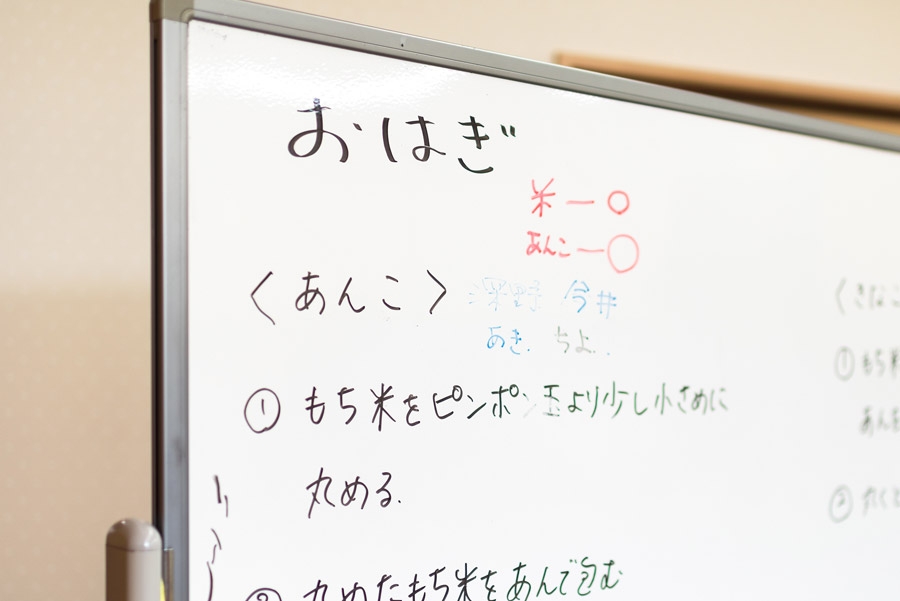 おはぎ
米 — ○
あんこ — ○
〈あんこ〉 今井
あき. ちよ..
① もち米をピンポン玉より少し小さめに
丸める.
② 丸めたもち米をあんで包む
〈きなこ
① もち米
あんを
② 丸く